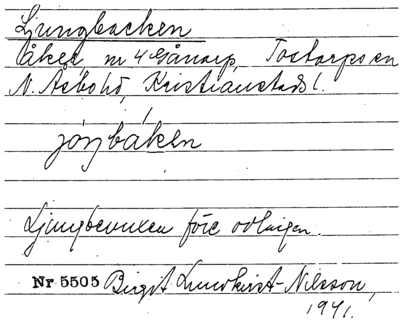 Ljungbacken
Åker, nr 4 Gånarp, Tostarps sn
N. Åsbo hd, Kristianstads l.
jåŋbákən
Ljungbevuxen före odlingen.
Nr 5505 Birgit Lundkvist-Nilsson,
1941.